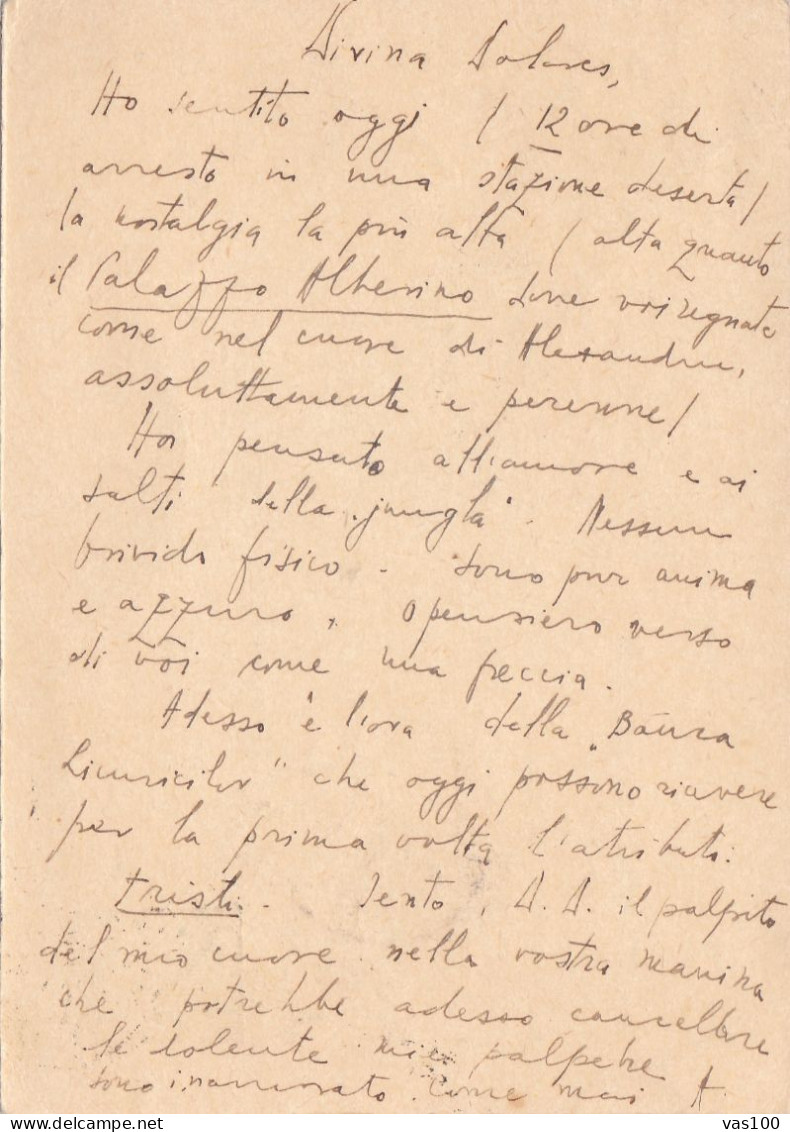 Divina Dolores,
Ho sentito oggi / 12 ore di
arresto in una stazione deserta /
la nostalgia la più alta / alta quanto
il Palazzo Atherino dove voi regnate
come nel cuore di Alexandru,
assoluttamente e perenne /
Ho pensato all'amore e ai
salti della "jungla". Nessun
brivido fisico - sono pur anima
e azzuro, o pensiero verso
di voi come una freccia.
Adesso è l'ora della "Banca
" che oggi possono riavere
per la prima volta l'atributi
tristi. Sento, D. D. il palpito
del mio cuore nella vostra manina
che potrebbe adesso cancellare
le mie palpebre
sono innamorato come mai A
vas100